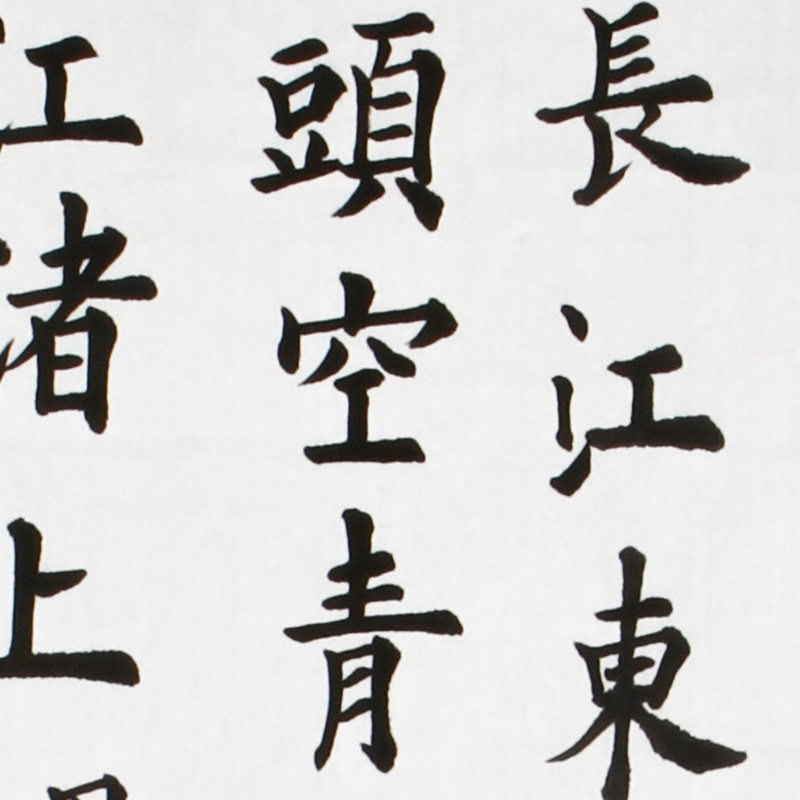 長江東
頭空青
江渚上